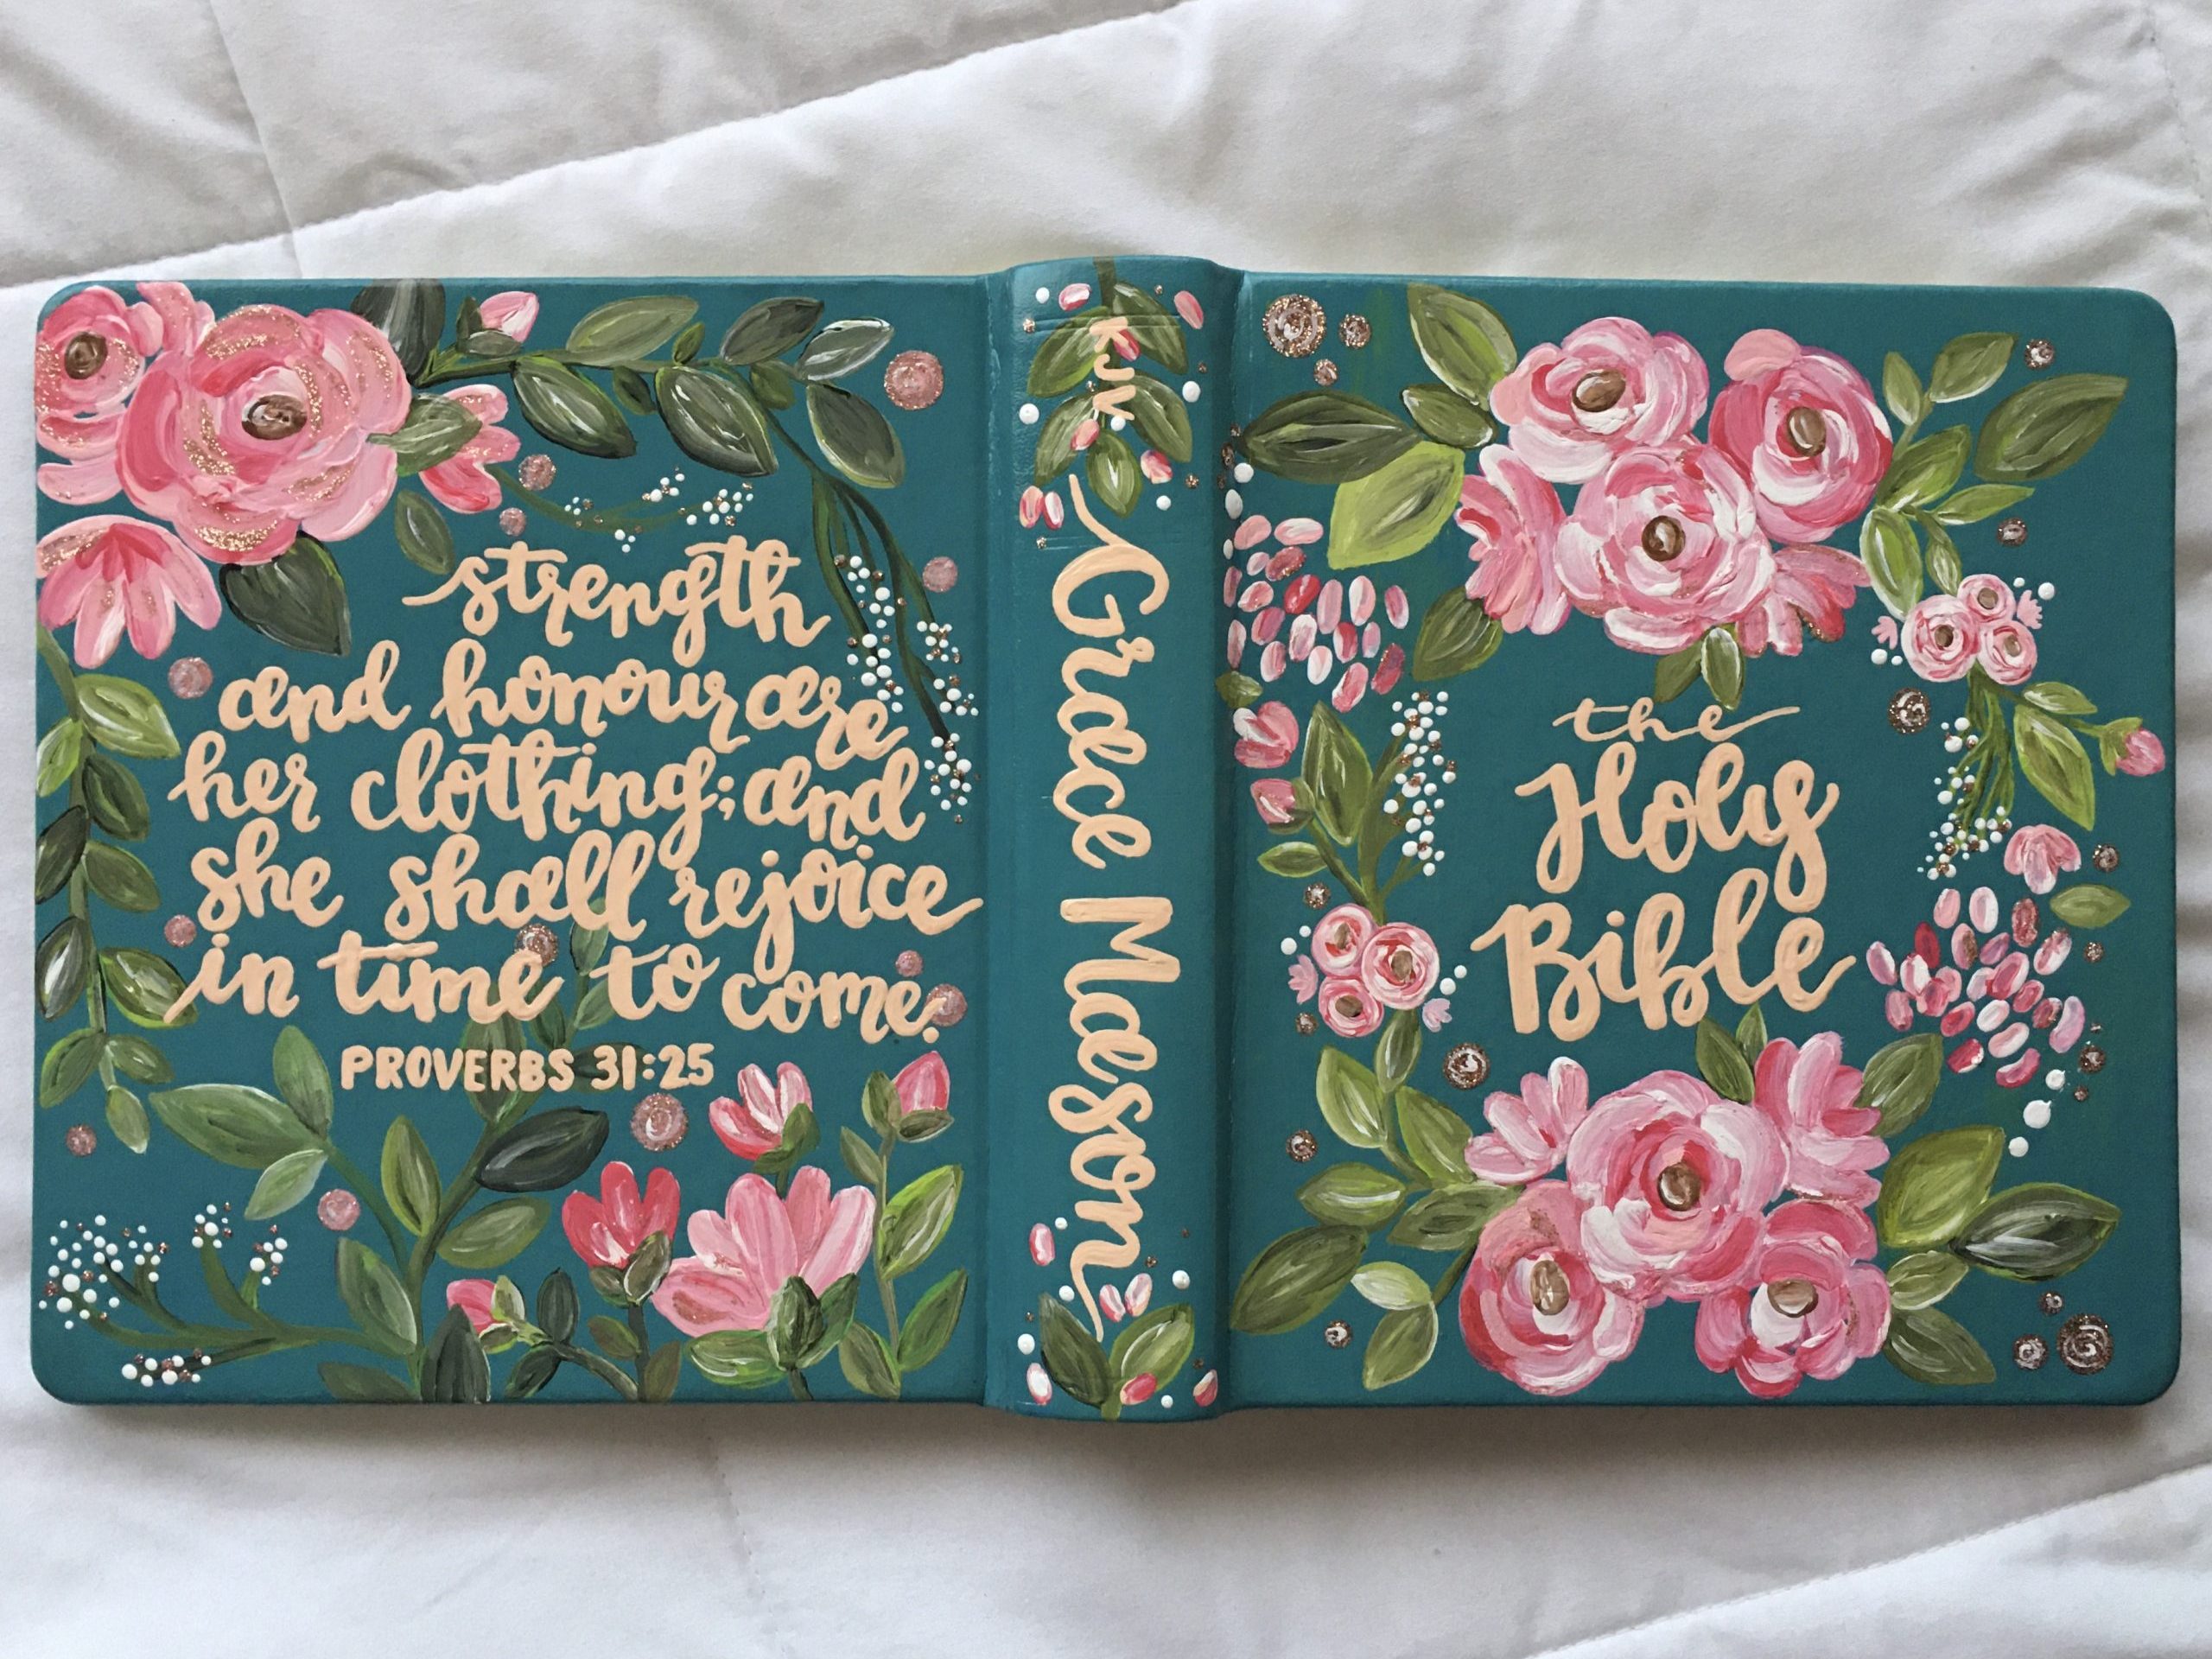 strength
and honour are
her clothing; and
she shall rejoice
in time to come.
PROVERBS 31:25
KJV
Grace Maeson
the
Holy
Bible